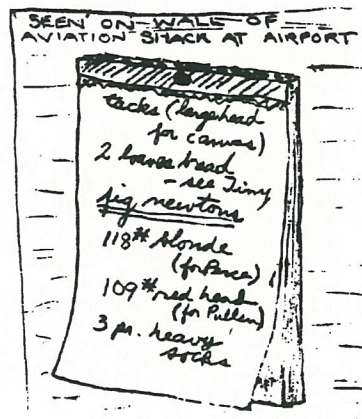 SEEN ON WALL OF
AVIATION SHACK AT AIRPORT
tacks (largehead
for canvas)
2 loaves bread
- see Tiny
fig newtons
118# blonde
(for Pierce)
109# red head
(for Pullen)
3 pr. heavy
socks